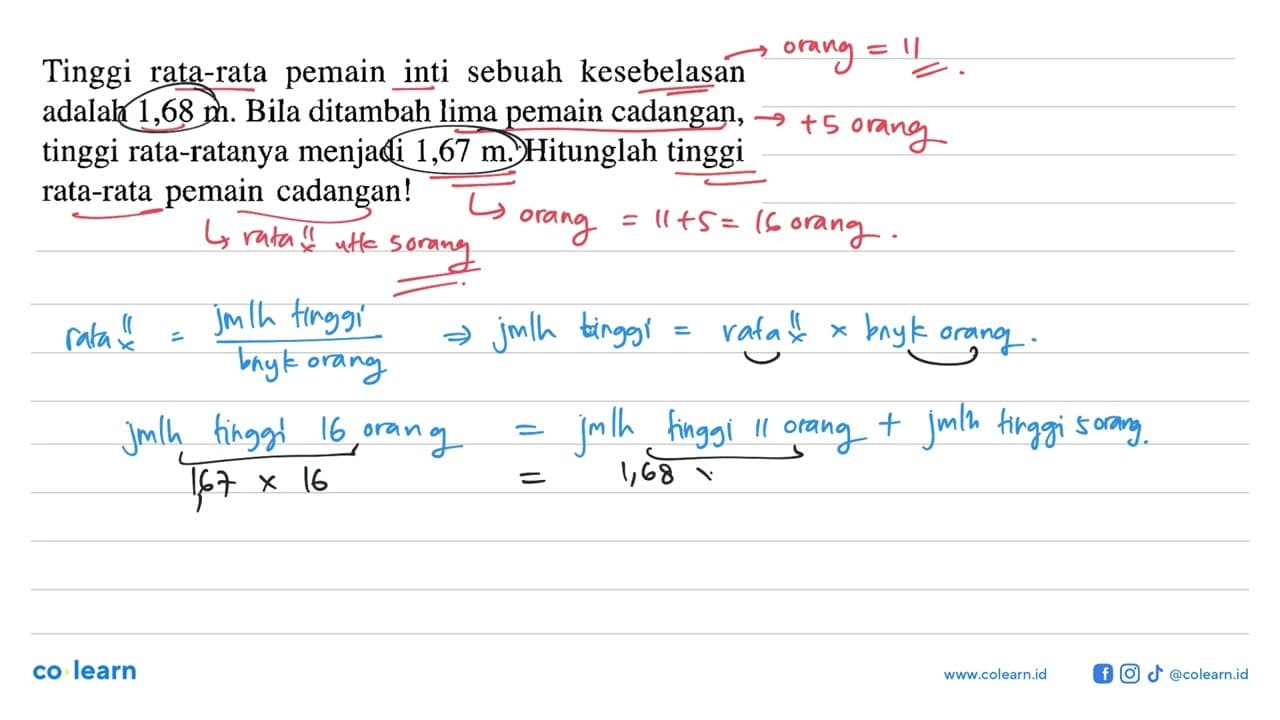 Tinggi rata-rata pemain inti sebuah kesebelasan → orang = 11.
adalah 1,68 m. Bila ditambah lima pemain cadangan, → +5 orang
tinggi rata-ratanya menjadi 1,67 m. Hitunglah tinggi
rata-rata pemain cadangan!
↳ orang = 11+5 = 16 orang.
↳ rata" utk 5 orang
rata" = jmlh tinggi / bnyk orang ⇒ jmlh tinggi = rata" × bnyk orang.
jmlh tinggi 16 orang = jmlh tinggi 11 orang + jmlh tinggi 5 orang.
1,67 × 16 = 1,68
co learn
www.colearn.id
@colearn.id